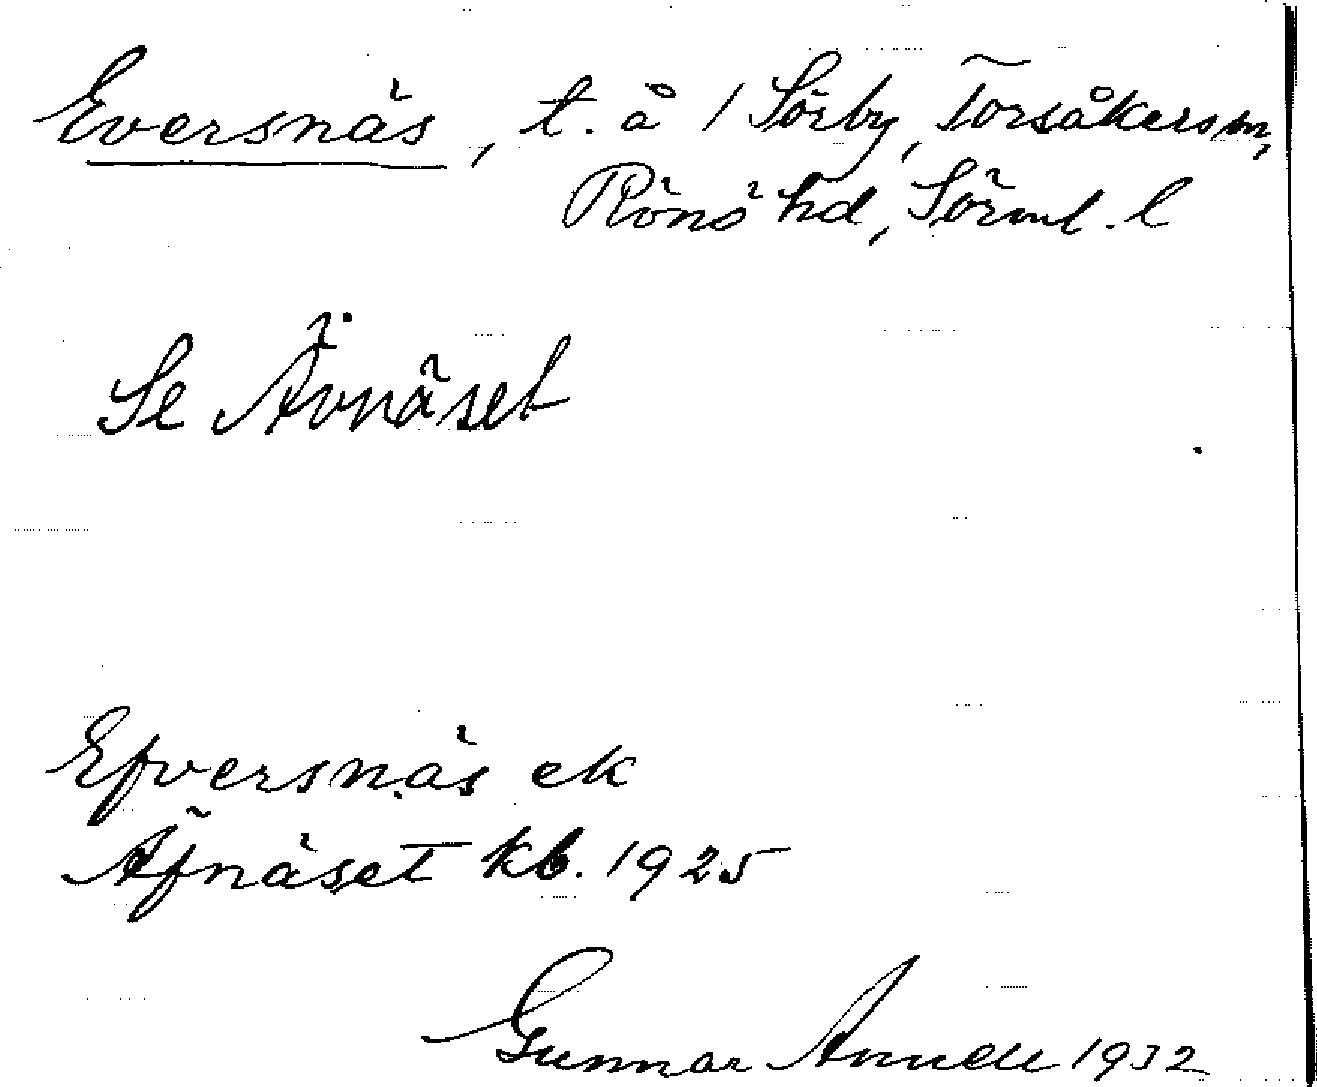 Eversnäs, t. å 1 Sörby, Torsåkers sn,
Rönö hd, Sörml. l
Se Ävnäset
Efversnäs ek
Äfnäset kb. 1925
Gunnar 1932